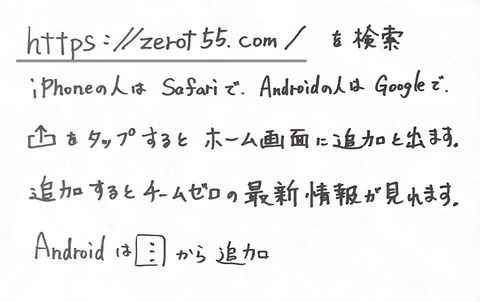 https://zerot55.com/ を検索
iPhoneの人は Safariで、Androidの人は Googleで、
をタップすると ホーム画面に追加と出ます。
追加するとチームゼロの最新情報が見れます。
Android は ⋮ から追加